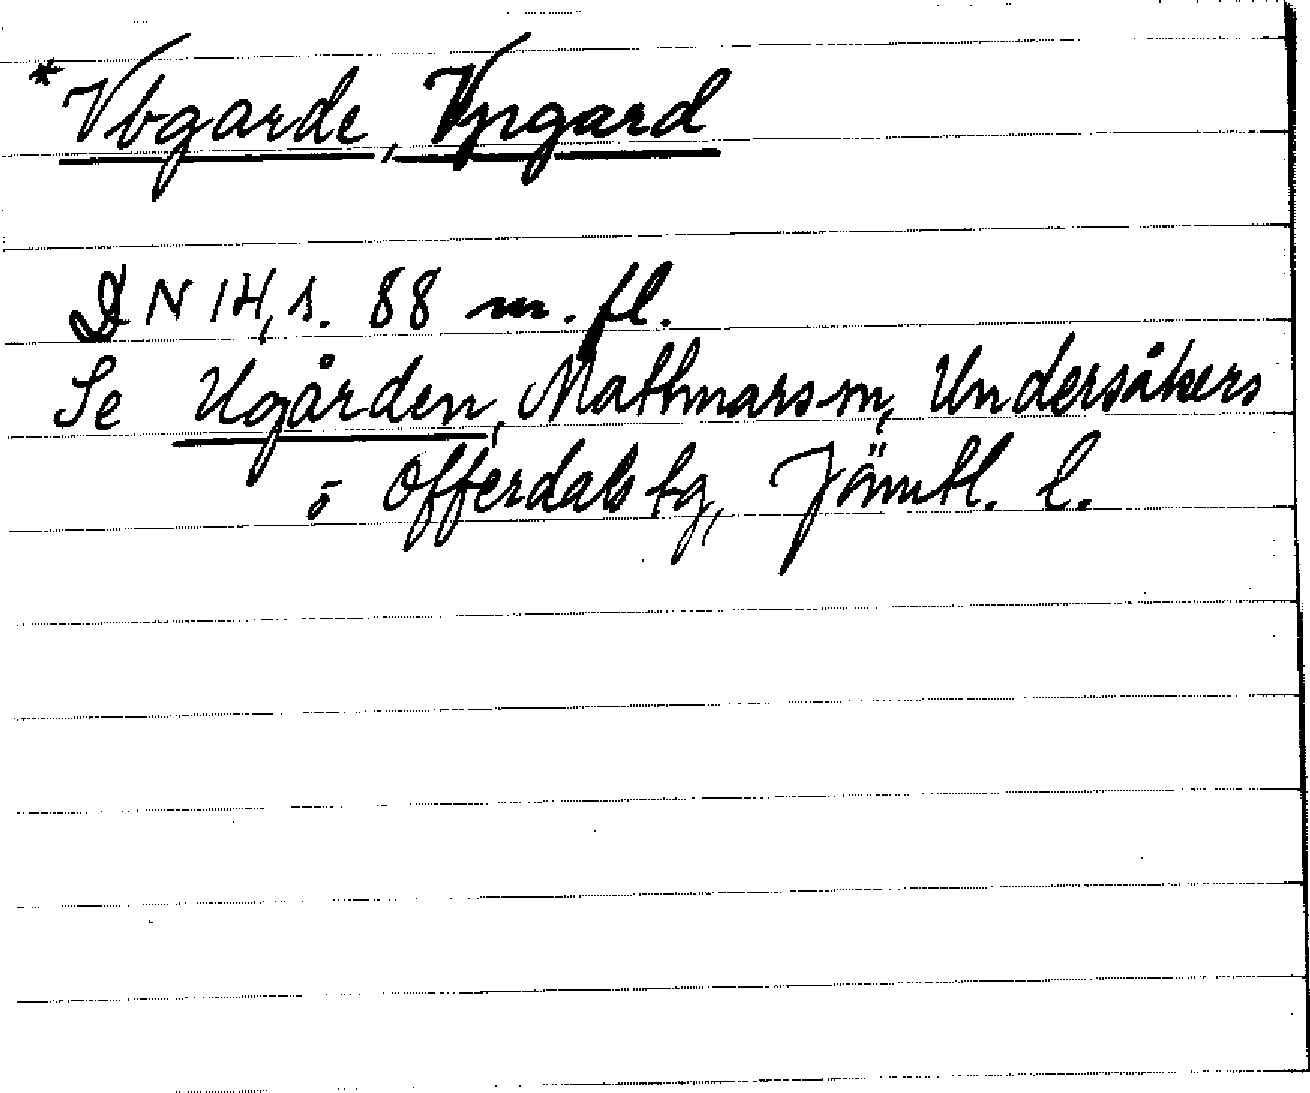 *Vbgarde, Vpgard
DN 14, s. 88 m. fl.
Se Ugården, Mathmars sn, Undersåkers
o Offerdals tg, Jämtl. l.